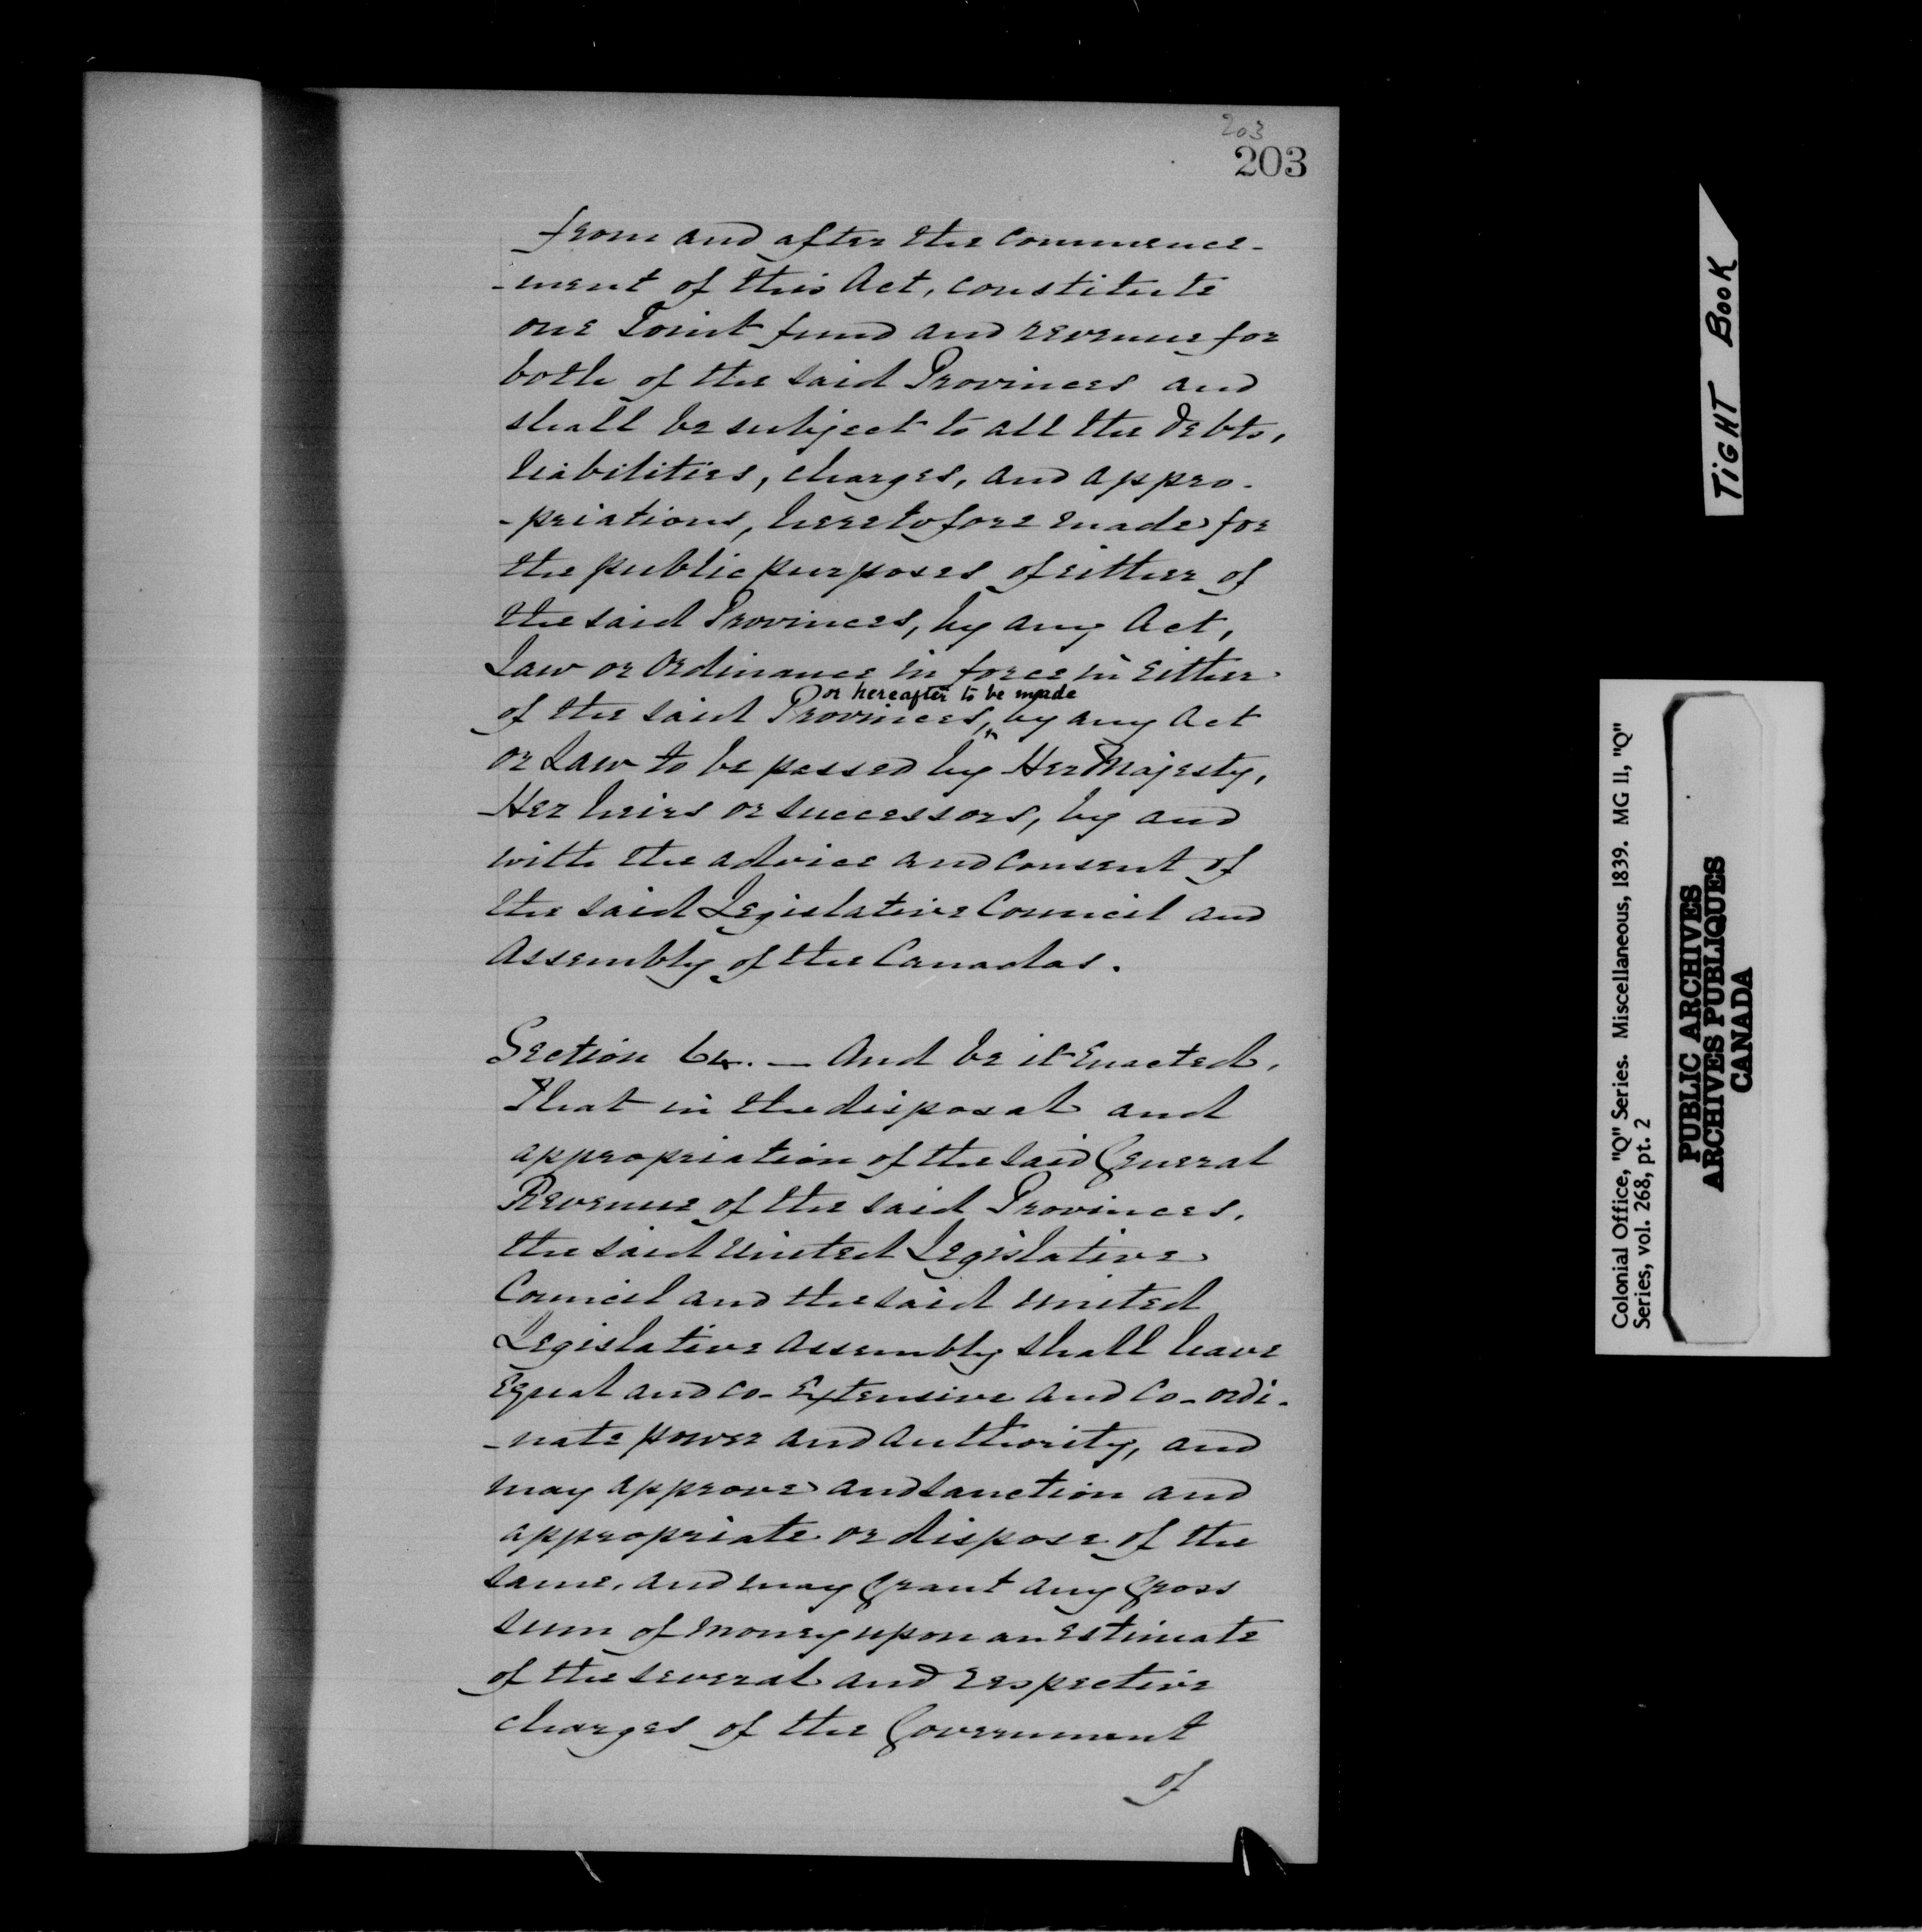 203
203
from and after the commence-
-ment of this Act, constitute
one Joint fund and revenue for
both of the said Provinces and
shall be subject to all the debts,
liabilities, charges, and appro-
-priations, heretofore made for
the public purposes of either of
the said Provinces, by any Act,
Law or Ordinance in force in either
or hereafter to be made
of the said Provinces, by any Act
or Law to be passed by Her Majesty,
Her heirs or successors, by and
with the advice and consent of
the said Legislative Council and
Assembly of the Canadas.
Section 64. — And be it Enacted,
That in the disposal and
appropriation of the said General
Revenue of the said Provinces,
the said United Legislative
Council and the said United
Legislative Assembly shall have
Equal and co-Extensive and Co-ordi-
-nate power and authority, and
may approve and sanction and
appropriate or dispose of the
same, and may Grant any Gross
sum of money upon an Estimate
of the several and respective
charges of the Government
of
TIGHT BOOK
Colonial Office, "Q" Series. Miscellaneous, 1839. MG 11, "Q"
Series, vol. 268, pt. 2
PUBLIC ARCHIVES
ARCHIVES PUBLIQUES
CANADA